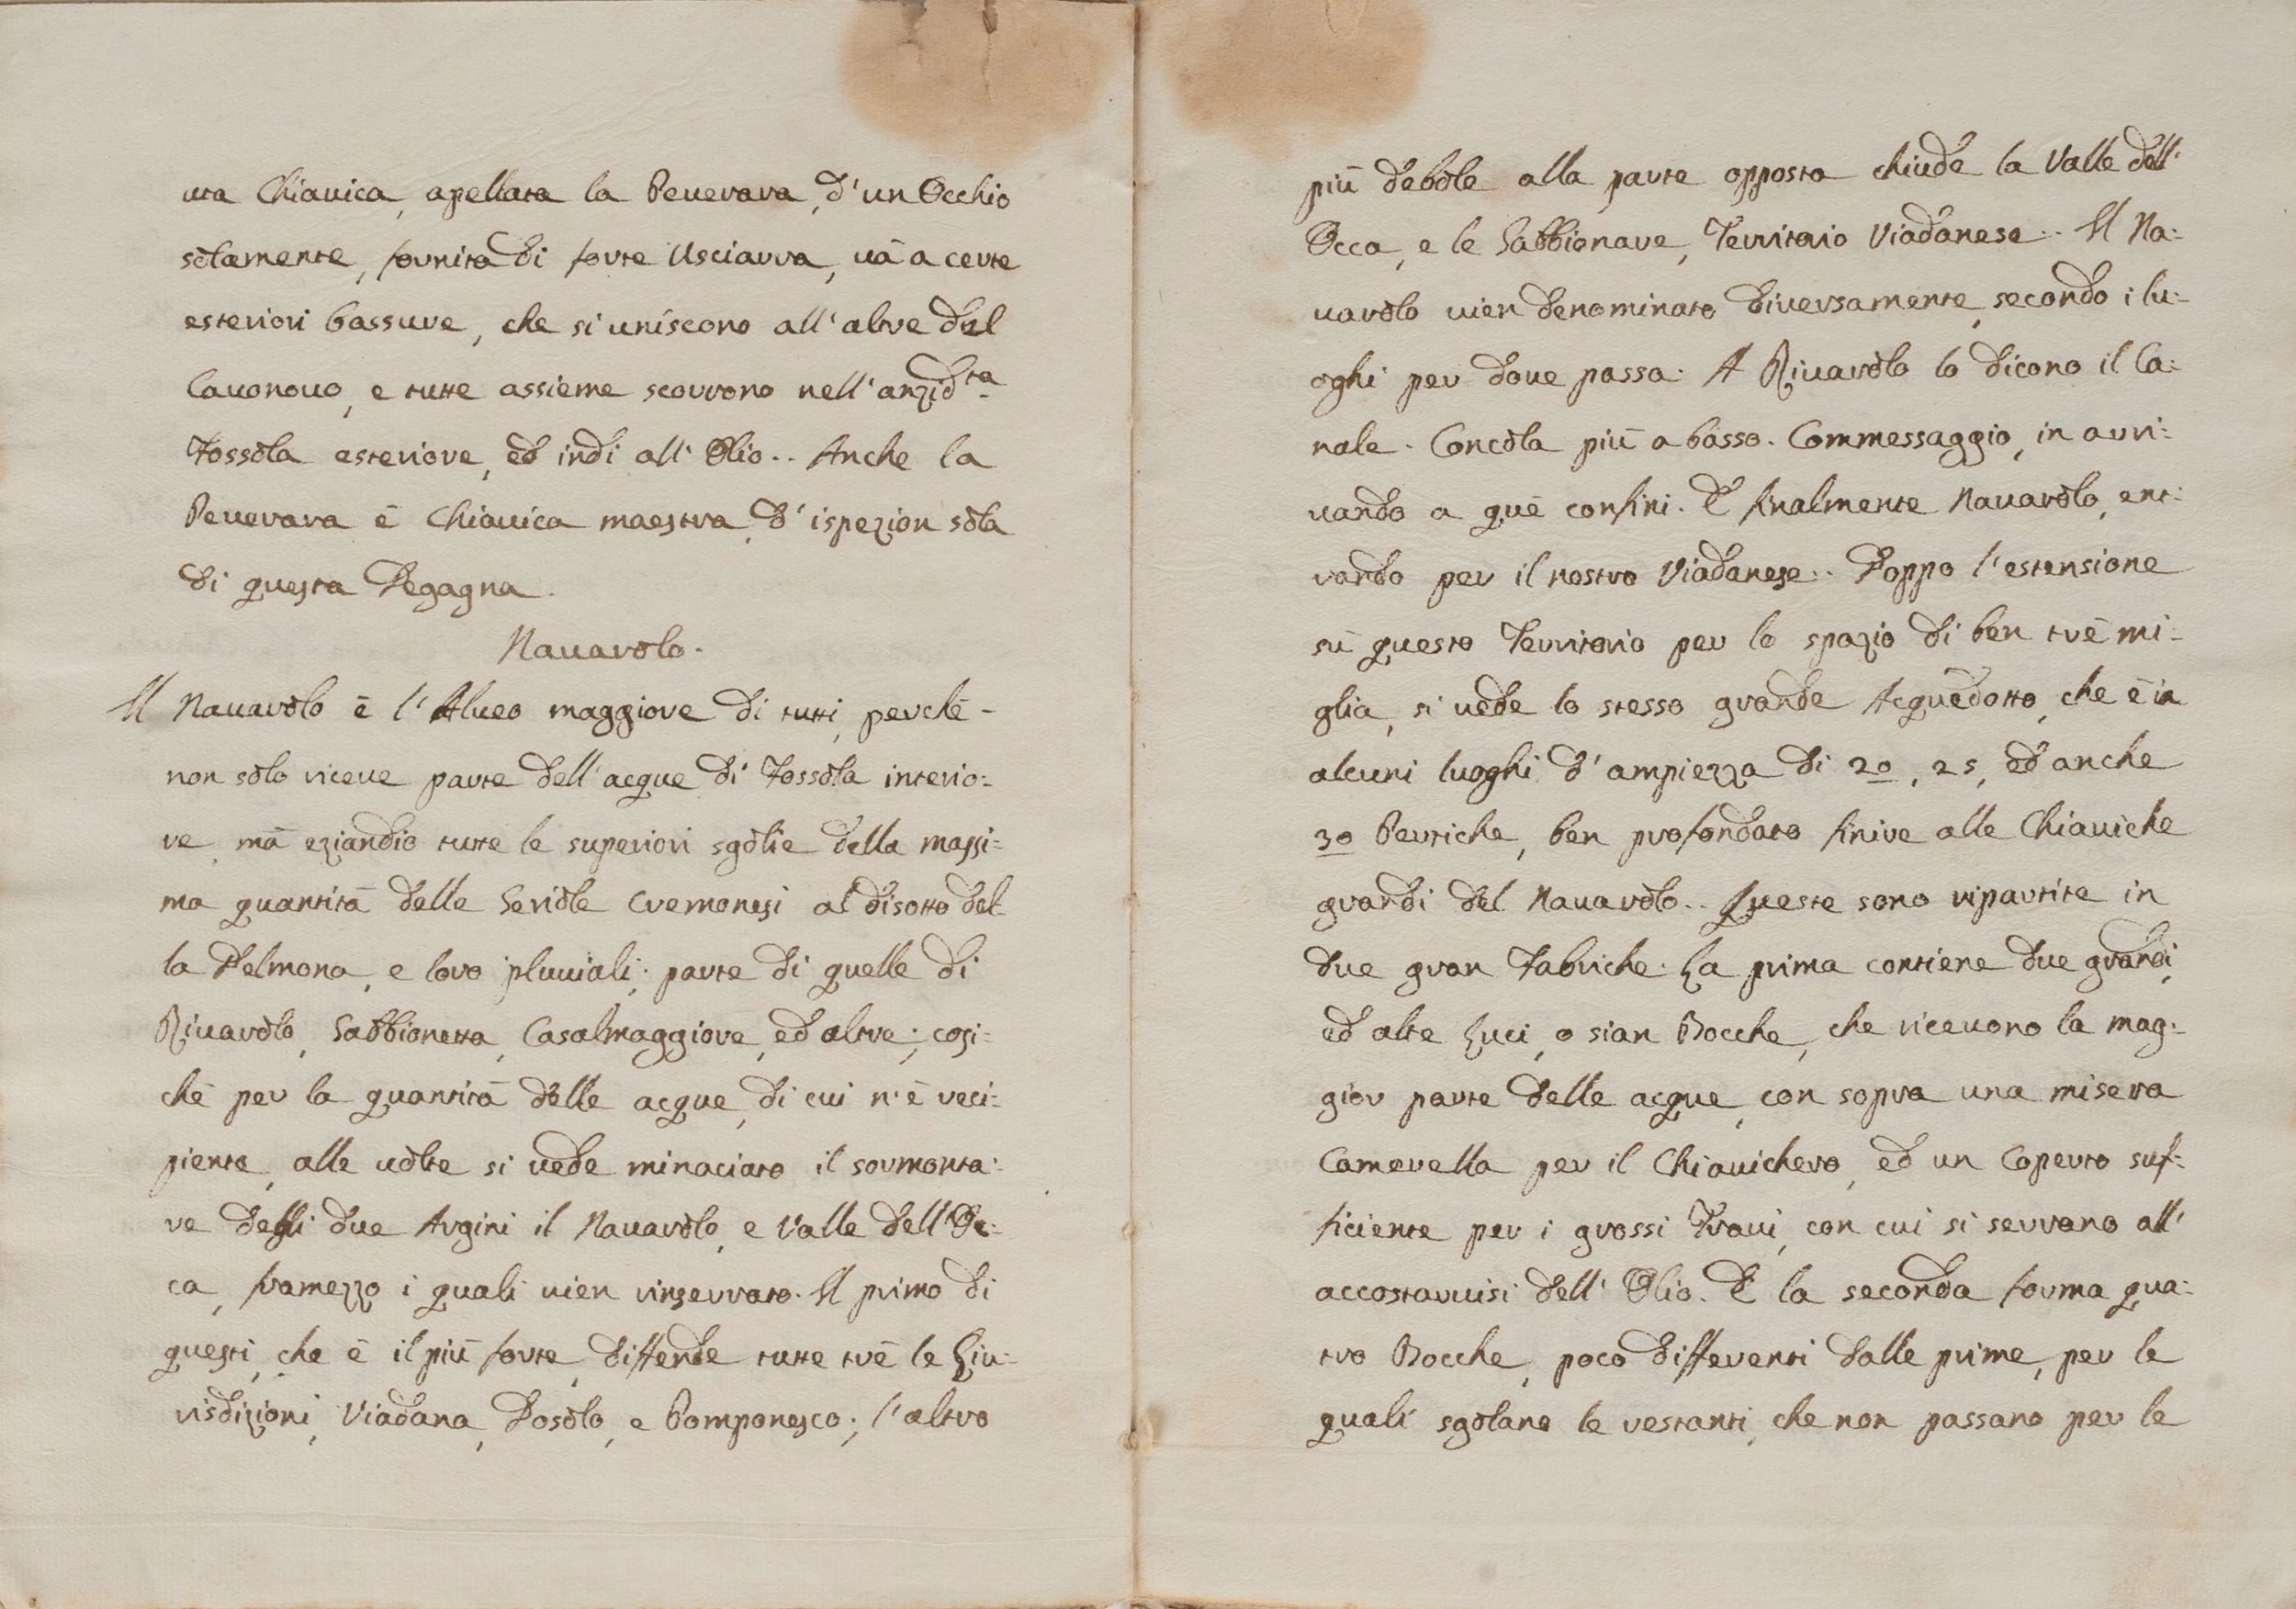 tra Chiavica, apellata la Peverara, d'un Occhio
solamente, fornita di forte Usciarra, và a certe
esteriori bassure, che si uniscono all'altre del
Cavonovo, e tutte assieme scorrono nell'anzid.ta
Fossola esteriore, ed indi all'Olio.. Anche la
Peverara è Chiavica maestra, d'ispezion sola
di questa Degagna.
Navarolo.
Il Navarolo è l'Alveo maggiore di tutti, perchè-
non solo riceve parte dell'acque di Fossola interio:
re, mà eziandio tutte le superiori sgolie della massi:
ma quantità delle Seriole Cremonesi al disotto del-
la Delmona, e loro pluviali; parte di quelle di
Rivarolo, Sabbionetta, Casalmaggiore, ed altre; cosi:
chè per la quantità delle acque, di cui n'è reci:
piente, alle volte si vede minaciato il sormonta:
re degli due Argini il Navarolo, e Valle dell'Oc:
ca, framezzo i quali vien rinserrato. Il primo di
questi, che è il più forte, diffende tutte trè le Giu:
risdizioni, Viadana, Dosolo, e Pomponesco; l'altro
più debole alla parte opposta chiude la Valle dell'
Occa, e le Sabbionare, Territorio Viadanese.. Il Na:
varolo vien denominato diversamente, secondo i lu:
oghi per dove passa. A Rivarolo lo dicono il Ca:
nale. Concola più a basso. Commessaggio, in arri:
vando a què confini. E finalmente Navarolo, ent:
rando per il nostro Viadanese.. Doppo l'estensione
sù questo Territorio per lo spazio di ben trè mi:
glia, si vede lo stesso grande Acquedotto, che è in
alcuni luoghi d'ampiezza di 20, 25, ed anche
30 Pertiche, ben profondato finire alle Chiaviche
grandi del Navarolo.. Queste sono ripartite in
due gran Fabriche. La prima contiene due grandi,
ed alte Luci, o sian Bocche, che ricevono la mag:
gior parte delle acque, con sopra una misera
Camerella per il Chiavichero, ed un Coperto suf:
ficiente per i grossi Travi, con cui si serrano all'
accostarvisi dell'Olio. E la seconda forma qua:
tro Bocche, poco differenti dalle prime, per le
quali sgolano le restanti, che non passano per le